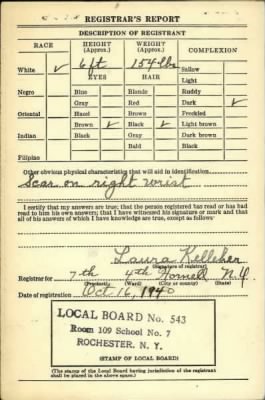 REGISTRAR'S REPORT
DESCRIPTION OF REGISTRANT
RACE HEIGHT (Approx.) WEIGHT (Approx.) COMPLEXION
White ✓ 6 ft 154 lbs Sallow
EYES HAIR Light
Negro Blue Blonde Ruddy
Gray Red Dark ✓
Oriental Hazel Brown Freckled
Brown ✓ Black ✓ Light brown
Indian Black Gray Dark brown
Bald Black
Filipino
Other obvious physical characteristics that will aid in identification
Scar on right wrist
I certify that my answers are true; that the person registered has read or has
had read to him his own answers; that I have witnessed his signature or mark and that
all of his answers of which I have knowledge are true, except as follows:
Laura Kelleher
(Signature of registrar)
Registrar for 7th 4th Hornell N.Y.
(Precinct) (Ward) (City or county) (State)
Date of registration Oct 16, 1940
LOCAL BOARD No. 543
Room 109 School No. 7
ROCHESTER, N. Y.
(STAMP OF LOCAL BOARD)
(The stamp of the Local Board having jurisdiction of the registrant
shall be placed in the above space.)